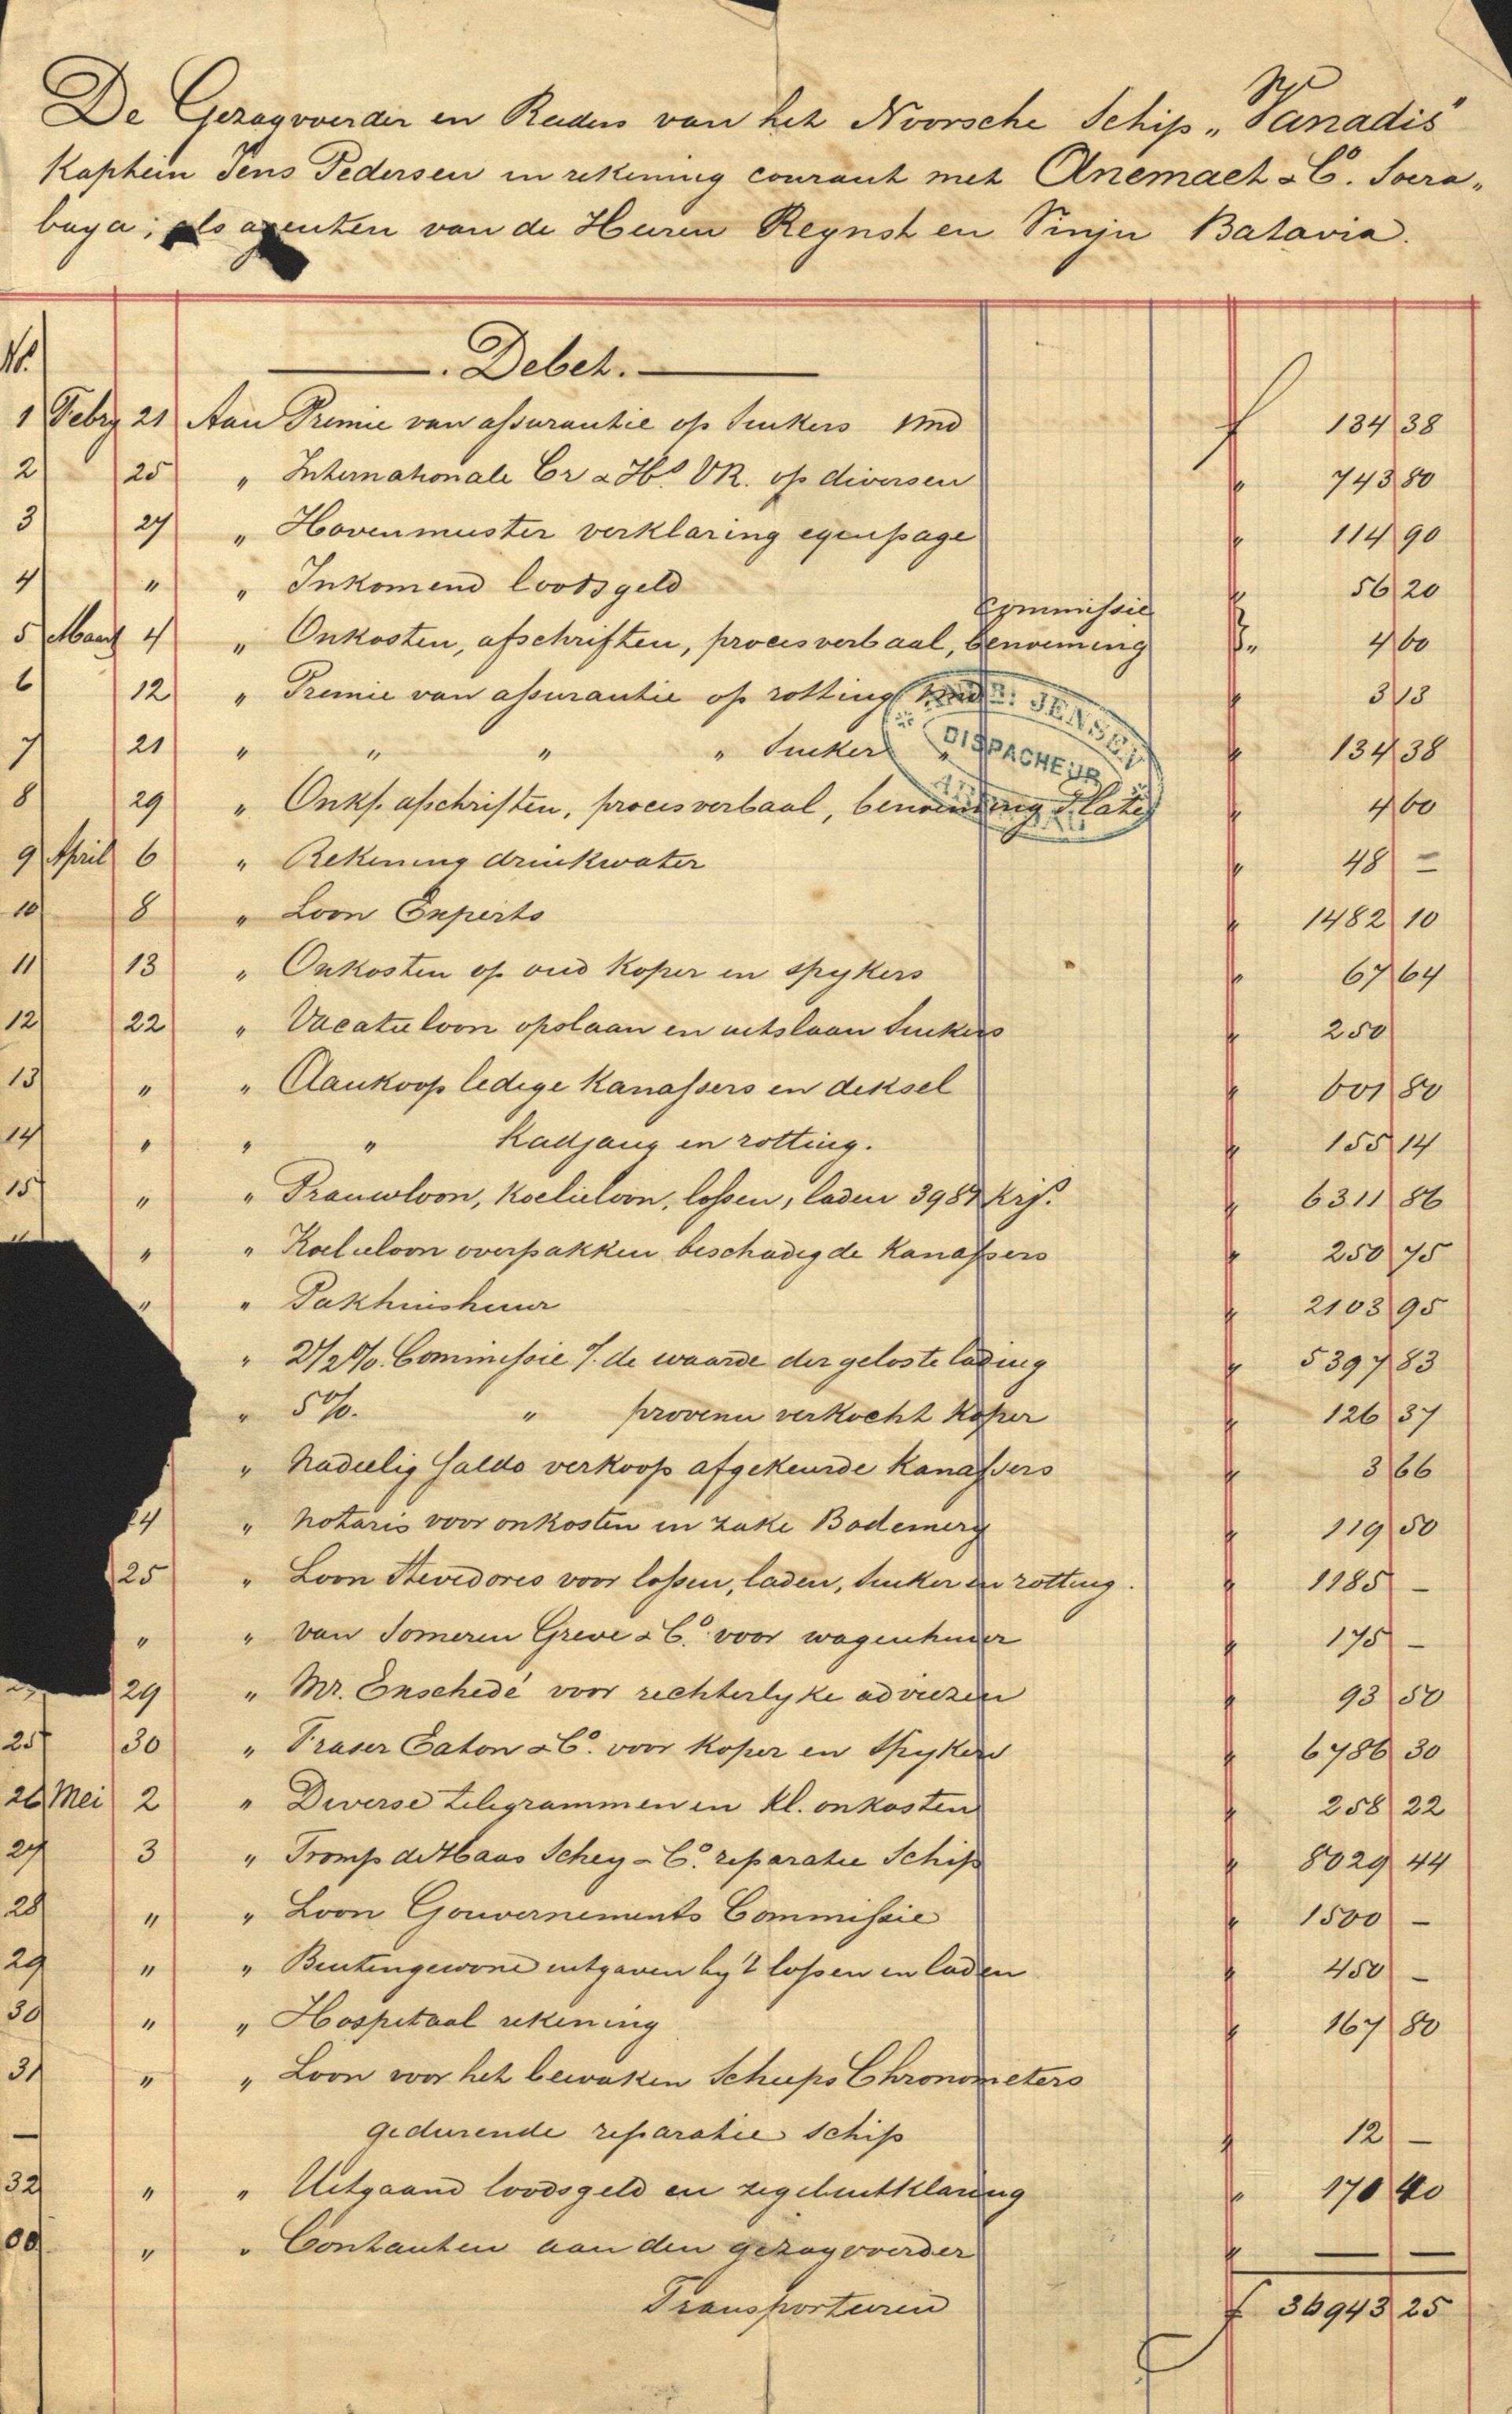 De Gezagvoerder en Reeders van het Noorsche Schip „Vanadis"
Kaptein Jens Pedersen in rekening courant met Anemaet & Co. Soera„
baya; als agenten van de Heeren Reynst en Vinju Batavia.
No. Debet.
1 Febry 21 Aan Premie van assurantie op Suikers f 134 38
2 25 " Internationale Cr & Hs VR. op diversen " 743 80
3 27 " Havenmeester verklaring egeupage " 114 90
4 " " Inkomend loodsgeld " 56 20
commissie
5 Maart 4 " Onkosten, afschriften, procesverbaal, benoeming " 4 60
6 12 " Premie van assurantie op rotting " 3 13
7 21 " " " " Suiker " " 134 38
8 29 " Onks. afschriften, procesverbaal, benoeming " 4 60
9 April 6 " Rekening drinkwater " 48 =
10 8 " Loon Experts " 1482 10
11 13 " Onkosten op oud koper en spykers " 67 64
12 22 " Vacatieloon opslaan en uitslaan Suikers " 250
13 " " Aankoop ledige Kanassers en deksel " 601 80
14 " " " Kadjang en rotting. " 155 14
15 " " Prauwloon, Koelieloon, lossen, laden 3987 Krjs. " 6311 86
" " Koelieloon overpakken beschadigde Kanassers " 250 75
" " Pakhuishuur " 2103 95
" 2 1/2 %. Commissie %. de waarde der geloste lading " 5397 83
" 5 %. " provenu verkocht Koper " 126 37
" Nadeelig Saldo verkoop afgekeurde Kanassers " 3 66
24 " Notaris voor onkosten in zake Bodemery " 119 50
25 " Loon Stevedores voor lossen, laden, Suiker en rotting. " 1185 –
" " van Someren Greve & Co. voor wagenhuur " 175 –
29 " Mr. Enschedé voor rechterlyke adviezen " 93 50
25 30 " Fraser Eaton & Co. voor koper en Spykers " 6786 30
26 Mei 2 " Diverse telegrammen en kl. onkosten " 258 22
27 3 " Tromp de Haas Schey & Co. reparatie Schip " 8029 44
28 " " Loon Gouvernements Commissie " 1500 –
29 " " Buitengewone uitgaven by 't lossen en laden " 450 –
30 " " Hospitaal rekening " 167 80
31 " " Loon voor het bewaken Scheeps Chronometers
— gedurende reparatie schip " 12 –
32 " " Uitgaand loodsgeld en zegel uitklaring " 170 40
" " Contanten aan den gezagvoerder " — —
Transporteeren f 36943 25
JENSEN
DISPACHEUR